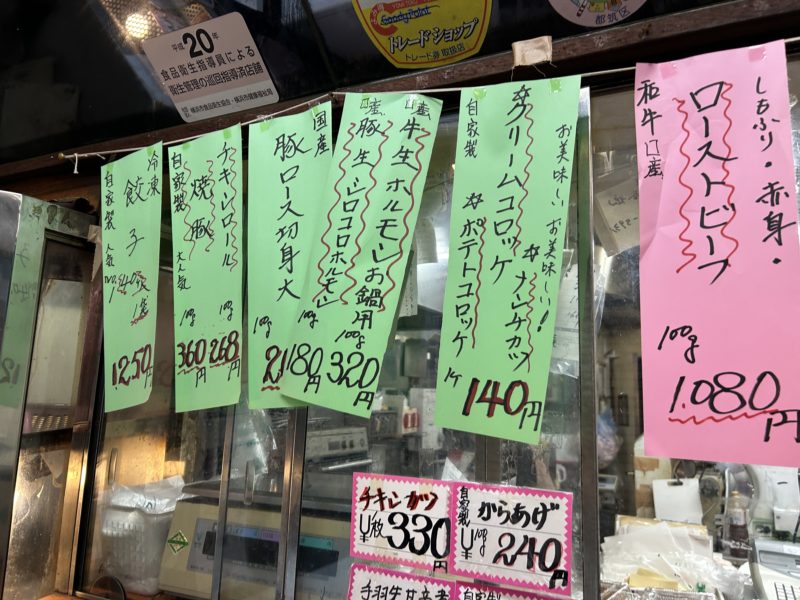 平成20年
食品衛生指導員による
衛生管理の巡回指導済店舗
横浜市食品衛生協会・横浜市健康福祉局
トレードショップ
トレード券取扱店
都筑区
冷凍
餃子
自家製
人気
No.1
40ヶ
1袋
1,250円
チキンロール
焼豚
自家製
大人気
100g
268円
100g
360円
国産
豚ロース切身大
100g
牛生ホルモンお鍋用
100g 320円
豚生シロコロホルモン
100g
180円
お美味しいお美味しい!
☆クリームコロッケ
☆メンチカツ
自家製
☆ポテトコロッケ
1ケ 140円
しもふり・赤身・
ローストビーフ
和牛
100g
1.080円
チキンカツ
1枚
¥330
からあげ
自家製
100g
¥240
自家製